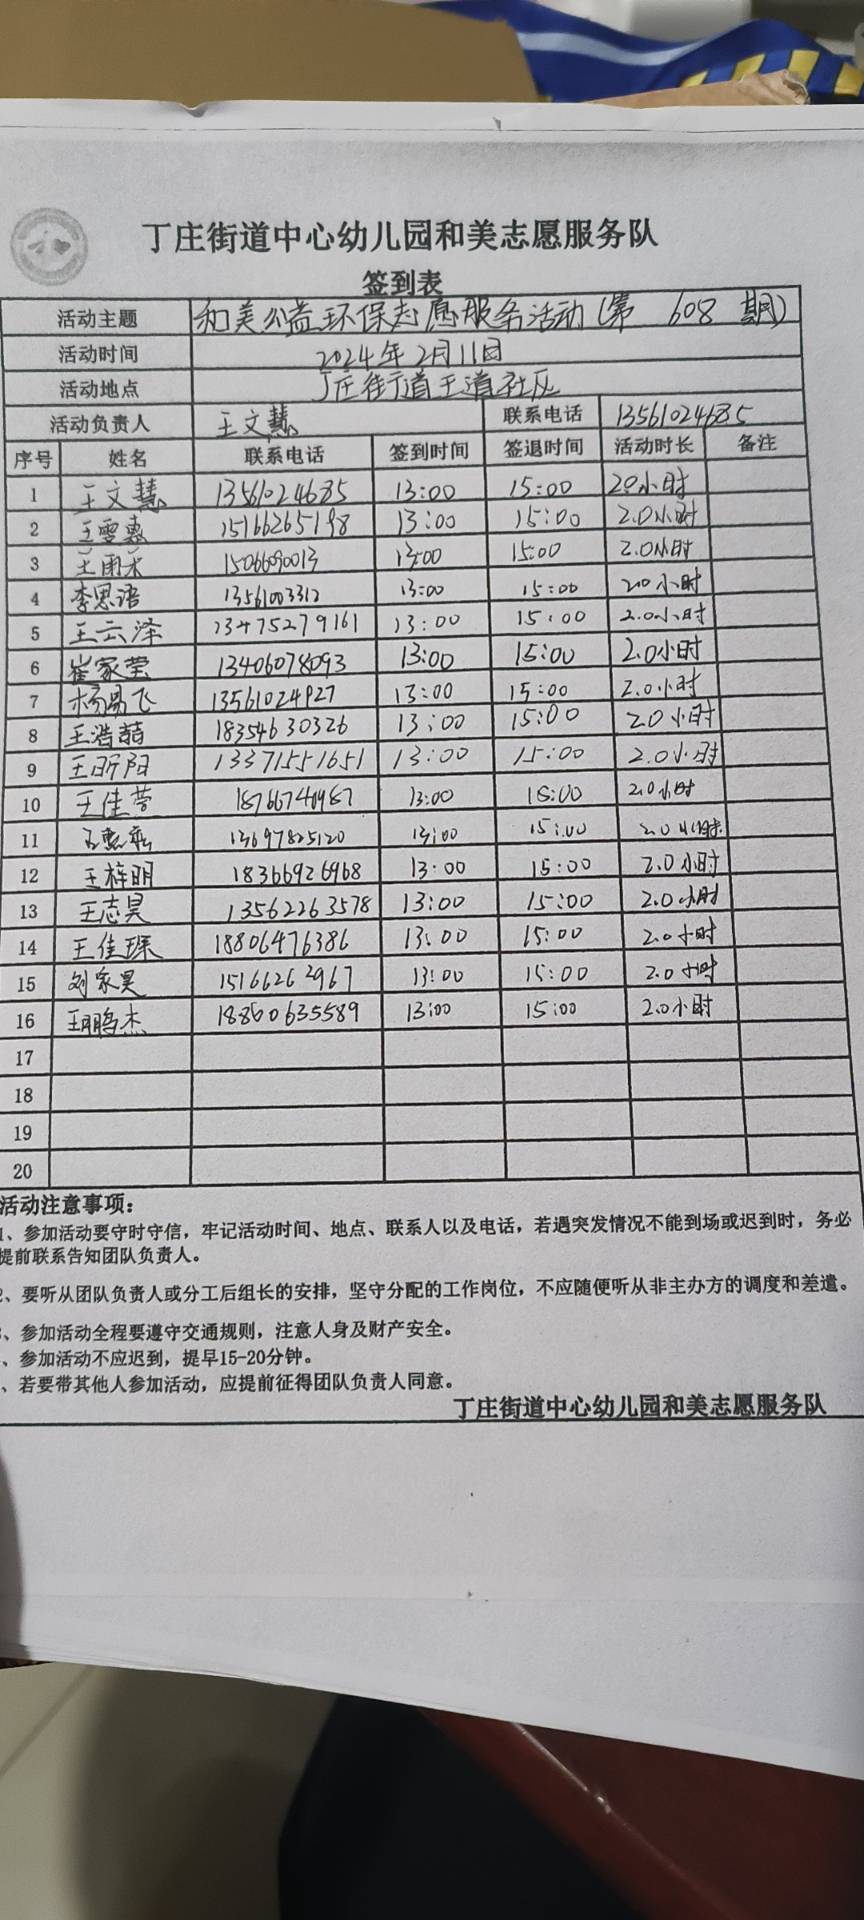 丁庄街道中心幼儿园和美志愿服务队
签到表
活动主题 和美公益环保志愿服务活动(第 608 期)
活动时间 2024年2月11日
活动地点 丁庄街道王道社区
活动负责人 王文慧 联系电话 13561024685
序号 姓名 联系电话 签到时间 签退时间 活动时长 备注
1 王文慧 13561024685 13:00 15:00 2.0小时
2 王雪惠 15166265198 13:00 15:00 2.0小时
3 王雨禾 15066090013 13:00 15:00 2.0小时
4 李思语 13561003312 13:00 15:00 2.0小时
5 王云泽 13475279161 13:00 15:00 2.0小时
6 崔家莹 13406078093 13:00 15:00 2.0小时
7 杨易飞 13561024927 13:00 15:00 2.0小时
8 王浩喆 18354630326 13:00 15:00 2.0小时
9 王昕阳 13371551651 13:00 15:00 2.0小时
10 王佳萱 13:00 15:00 2.0小时
11 13697825120 13:00 15:00 2.0小时
12 王梓明 18366926968 13:00 15:00 2.0小时
13 王志昊 13562263578 13:00 15:00 2.0小时
14 王佳琛 18806476386 13:00 15:00 2.0小时
15 刘家昊 15166262967 13:00 15:00 2.0小时
16 王鹏杰 18860635589 13:00 15:00 2.0小时
17
18
19
20
活动注意事项：
1、参加活动要守时守信，牢记活动时间、地点、联系人以及电话，若遇突发情况不能到场或迟到时，务必
提前联系告知团队负责人。
2、要听从团队负责人或分工后组长的安排，坚守分配的工作岗位，不应随便听从非主办方的调度和差遣。
、参加活动全程要遵守交通规则，注意人身及财产安全。
、参加活动不应迟到，提早15-20分钟。
、若要带其他人参加活动，应提前征得团队负责人同意。
丁庄街道中心幼儿园和美志愿服务队